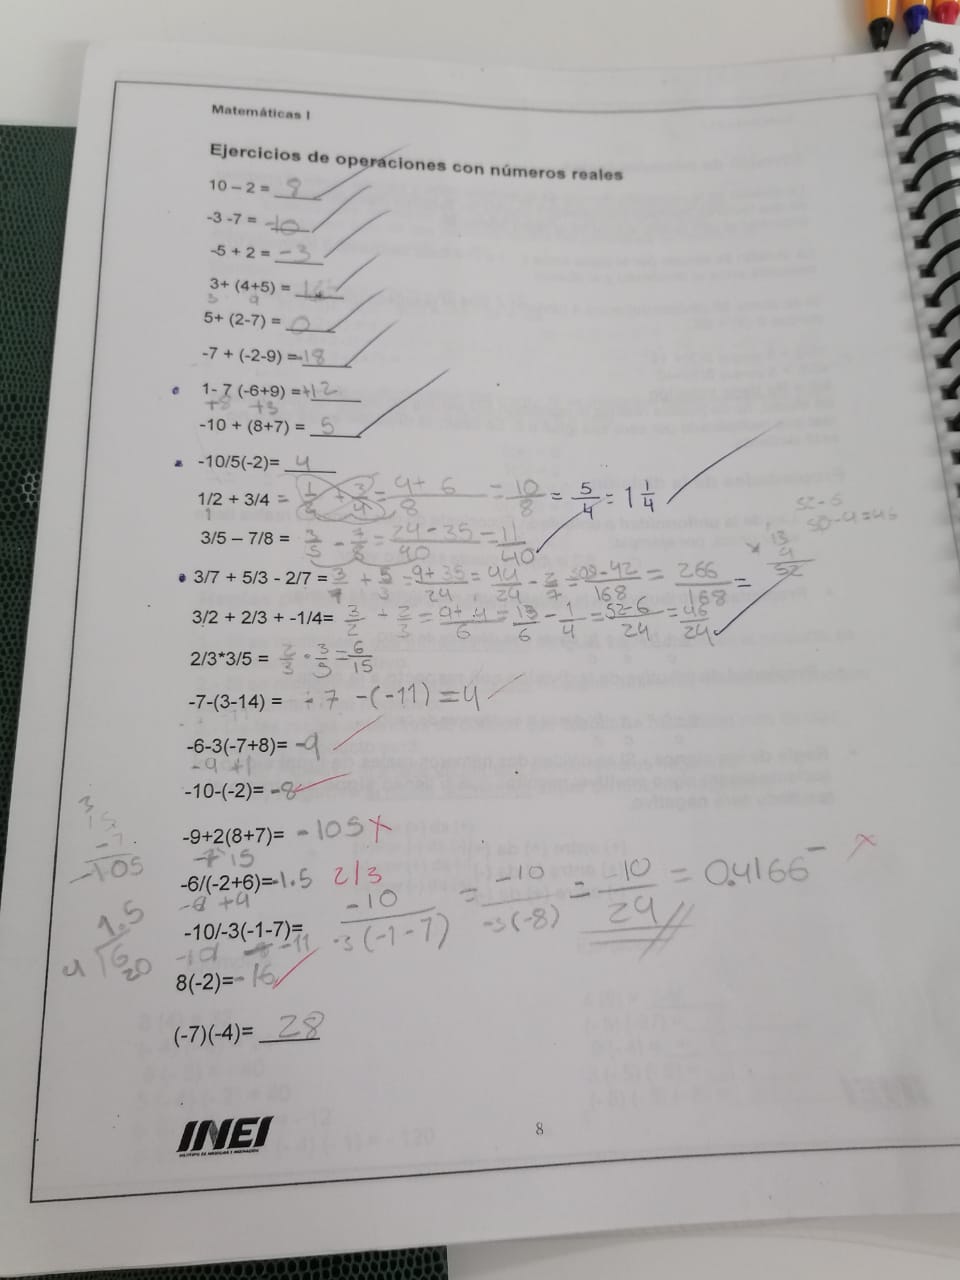 Matemáticas I
Ejercicios de operaciones con números reales
10 – 2 = 8
-3 -7 = -10
-5 + 2 = -3
3+ (4+5) =
3 9
5+ (2-7) = 0
-7 + (-2-9) = -18
1- 7 (-6+9) = +12
+8 +3
-10 + (8+7) = 5
-10/5(-2)= 4
1/2 + 3/4 = 1/2 + 3/4 = 4+6/8 = 10/8 = 5/4 = 1 1/4
3/5 – 7/8 = 3/5 - 7/8 = 24-35/40 = 11/40
3/7 + 5/3 - 2/7 = 3/7 + 5/3 = 9+35/24 = 44/24 - 2/7 = 308-42/168 = 266/168 =
3/2 + 2/3 + -1/4= 3/2 + 2/3 = 9+4/6 = 13/6 - 1/4 = 52-6/24 = 46/24
2/3*3/5 = 2/3 · 3/5 = 6/15
-7-(3-14) = -7 -(-11) = 4
-6-3(-7+8)= -9
-9 +1
-10-(-2)= -8
-9+2(8+7)= -105 x
-7 15
3
15
-7
-105
-6/(-2+6)=-1.5 2/3
-10/-3(-1-7)= -10/-3(-1-7) = -10/-3(-8) = 10/24 = 0.4166 x
1.5
4 6
20
8(-2)= -16
(-7)(-4)= 28
INEI
8